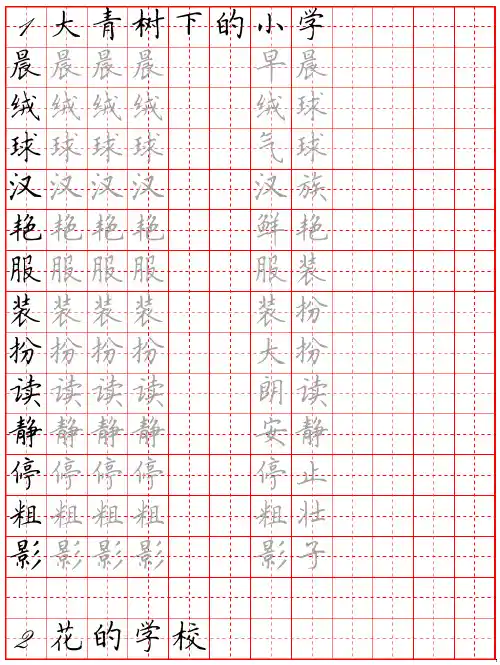 1 大青树下的小学
晨 晨 晨 晨 早 晨
绒 绒 绒 绒 绒 球
球 球 球 球 气 球
汉 汉 汉 汉 汉 族
艳 艳 艳 艳 鲜 艳
服 服 服 服 服 装
装 装 装 装 装 扮
扮 扮 扮 扮 大 扮
读 读 读 读 朗 读
静 静 静 静 安 静
停 停 停 停 停 止
粗 粗 粗 粗 粗 壮
影 影 影 影 影 子
2 花的学校